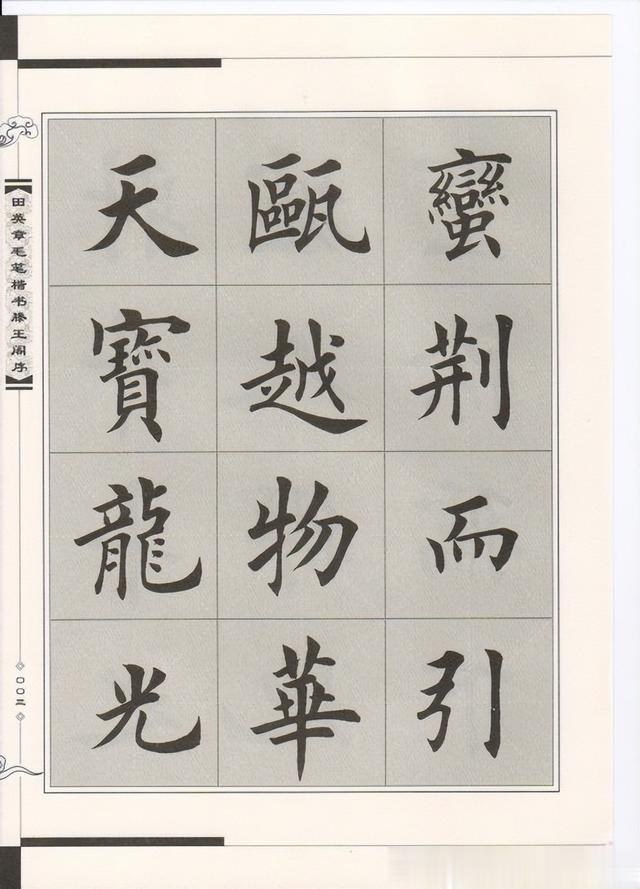 蠻荆而引
甌越物華
天寶龍光
田英章毛笔楷书滕王阁序
〇〇三